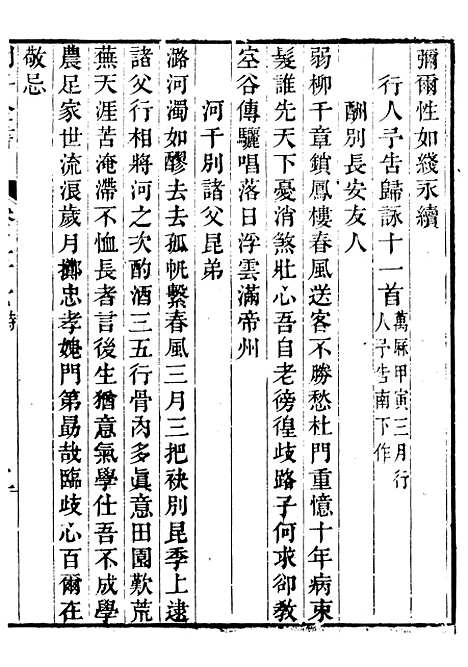 彌爾性如綫永續
行人予吿歸詠十一首萬厤甲寅三月行人予吿南下作
酬別長安友人
弱柳千章鎖鳳樓春風送客不勝愁杜門重憶十年病束
髮誰先天下憂消煞壯心吾自老徬徨歧路子何求卻敎
空谷傳驪唱落日浮雲滿帝州
河干別諸父昆弟
潞河濁如醪去去孤帆繫春風三月三把袂別昆季上逮
諸父行相將河之次酌酒三五行骨肉多眞意田園歎荒
蕪天涯苦淹滯不恤長者言後生猶意氣學仕吾不成學
農足家世流浪歲月擲忠孝媿門第勗哉臨歧心百爾在
敬忌